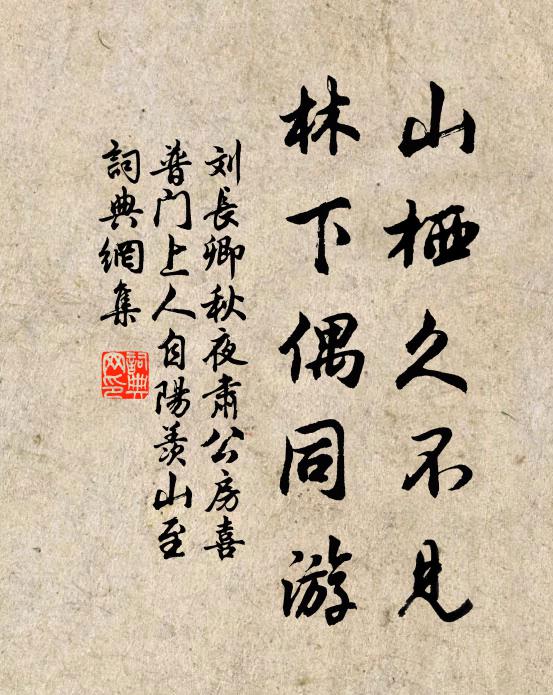 山栖久不見
林下偶同游
刘長卿秋夜肅公房喜
普门上人自陽羨山至
詞典網集
詞典网印